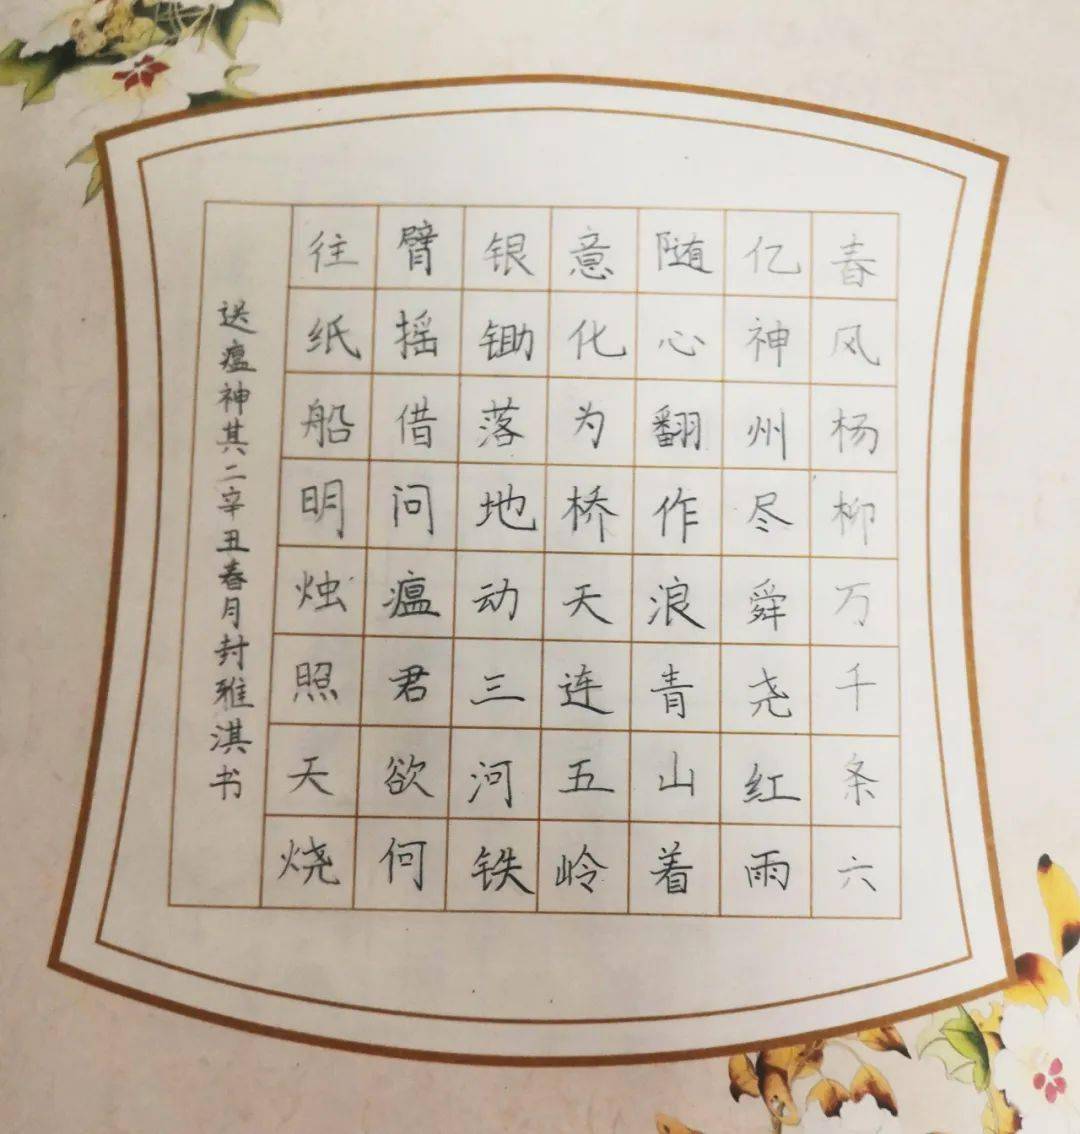 春风杨柳万千条六
亿神州尽舜尧红雨
随心翻作浪青山着
意化为桥天连五岭
银锄落地动三河铁
臂摇借问瘟君欲何
往纸船明烛照天烧
送瘟神其二辛丑春月封雅淇书